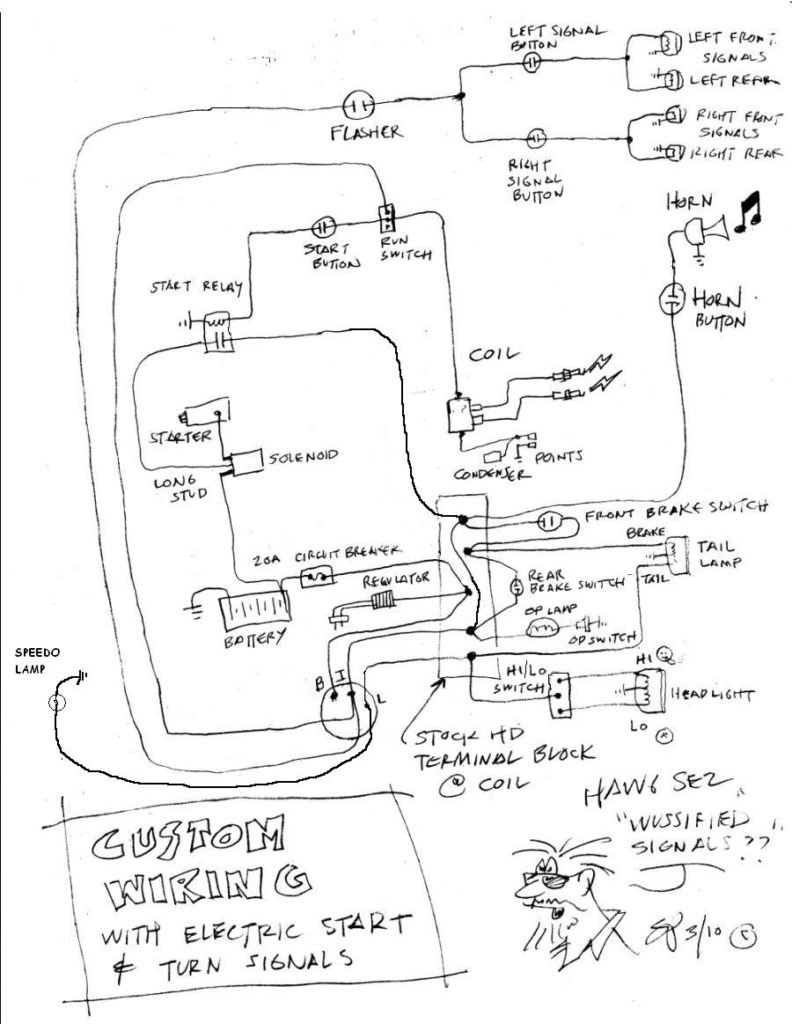 LEFT SIGNAL
BUTTON
LEFT FRONT
SIGNALS
LEFT REAR
FLASHER
RIGHT FRONT
SIGNALS
RIGHT REAR
RIGHT
SIGNAL
BUTTON
HORN
START
BUTTON
RUN
SWITCH
START RELAY
HORN
BUTTON
COIL
STARTER
SOLENOID
LONG
STUD
CONDENSER
POINTS
FRONT BRAKE SWITCH
BRAKE
TAIL
LAMP
TAIL
20A CIRCUIT BREAKER
REGULATOR
REAR
BRAKE SWITCH
OP LAMP
OP SWITCH
BATTERY
SPEEDO
LAMP
B I L
HI/LO
SWITCH
HI
HEADLIGHT
LO
STOCK HD
TERMINAL BLOCK
@ COIL
HAWG SEZ
"WUSSIFIED
SIGNALS??
CUSTOM
WIRING
WITH ELECTRIC START
& TURN SIGNALS
3/10